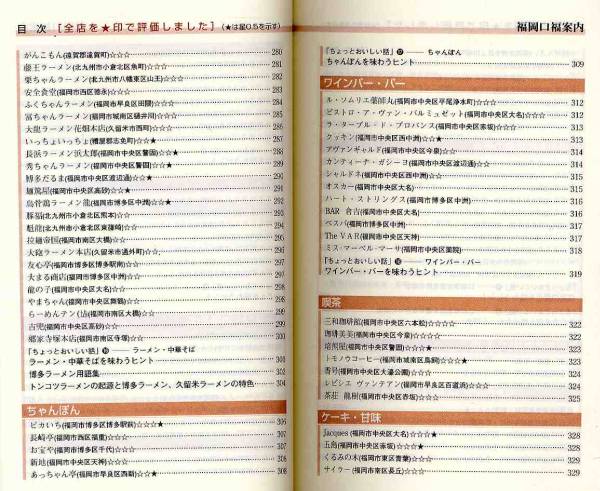 目 次 [全店を★印で評価しました] (★は星0.5を示す)
がんこもん(遠賀郡遠賀町)☆☆ 280
藤王ラーメン(北九州市小倉北区魚町)☆☆☆ 281
栗ちゃんラーメン(北九州市八幡東区山王)☆☆☆ 282
安全食堂(福岡市西区徳永)☆☆☆ 283
ふくちゃんラーメン(福岡市早良区田隈)☆☆☆ 284
冨ちゃんラーメン(福岡市城南区樋井川)☆☆☆ 285
大龍ラーメン花畑本店(久留米市西町)☆☆☆ 286
いっちょいっちょ(糟屋郡志免町)☆☆★ 287
長浜ラーメン浜太郎(福岡市中央区警固)☆☆★ 288
秀ちゃんラーメン(福岡市中央区警固)☆☆★ 289
博多だるま(福岡市中央区渡辺通)☆☆★ 290
麺篤屋(福岡市中央区高砂)☆☆★ 291
烏骨鶏ラーメン龍(福岡市博多区中洲)☆☆★ 292
豚福(北九州市小倉北区熊本)☆☆ 293
魁龍(北九州市小倉北区東篠崎)☆☆ 294
拉麺帝国(福岡市南区大橋)☆☆ 295
大砲ラーメン本店(久留米市通外町)☆☆ 296
友心亭(福岡市博多区博多駅南)☆☆ 297
大まる商店(福岡市博多区中洲)☆☆ 297
龍の子(福岡市中央区大名)☆☆ 298
やまちゃん(福岡市中央区舞鶴)☆☆ 298
らーめんテン(福岡市南区大橋)☆☆ 299
吉兜(福岡市中央区高砂)☆☆ 299
郷家寺塚本店(福岡市南区寺塚)☆☆ 300
「ちょっとおいしい話」 ラーメン・中華そば
ラーメン・中華そばを味わうヒント 301
博多ラーメン用語集 302
トンコツラーメンの起源と博多ラーメン、久留米ラーメンの特色 304
ちゃんぽん
ピカいち(福岡市博多区博多駅前)☆☆☆★ 306
長崎亭(福岡市西区福重)☆☆☆ 307
お宝や(福岡市博多区千代)☆☆☆ 307
新地(福岡市中央区天神)☆☆★ 308
あっちゃん亭(福岡市早良区西新)☆☆★ 308
福岡口福案内
「ちょっとおいしい話」⑰ ちゃんぽん
ちゃんぽんを味わうヒント 309
ワインバー・バー
ル・ソムリエ薬師丸(福岡市中央区平尾浄水町)☆☆☆ 312
ビストロ・ア・ヴァン・バルミュゼット(福岡市中央区大名)☆☆☆ 312
ラ・ターブル・ド・プロバンス(福岡市中央区赤坂)☆☆☆ 313
クッキン(福岡市中央区西中洲)☆☆★ 313
アヴァンギャルド(福岡市中央区今泉)☆☆ 314
カンティーナ・ガシーヨ(福岡市中央区渡辺通)☆☆ 314
シャルドネ(福岡市中央区西中洲)☆☆ 315
オスカー(福岡市中央区大名) 315
ハート・ストリングス(福岡市博多区中洲) 316
BAR 倉吉(福岡市中央区大名) 316
ベスパ(福岡市博多区中洲) 317
The VAR(福岡市中央区天神) 317
ミス・マーベル・マーサ(福岡市中央区薬院) 318
「ちょっとおいしい話」 ワインバー・バー
ワインバー・バーを味わうヒント 319
喫茶
三和珈琲館(福岡市中央区六本松)☆☆☆☆ 322
珈琲美美(福岡市中央区今泉)☆☆☆★ 322
焙煎屋(福岡市中央区警固)☆☆☆★ 323
トモノウコーヒー(福岡市城南区鳥飼)☆☆☆★ 323
香月(福岡市中央区大濠公園)☆☆☆ 324
レピシエ ヴァンテアン(福岡市早良区百道浜)☆☆☆ 324
茶荘 龍樹(福岡市中央区赤坂)☆☆☆ 325
ケーキ・甘味
Jacques (福岡市中央区大名)☆☆☆★ 328
五島(福岡市中央区赤坂)☆☆☆★ 328
くるみの木(福岡市東区青葉)☆☆☆ 329
サイラー(福岡市南区長丘)☆☆☆ 329